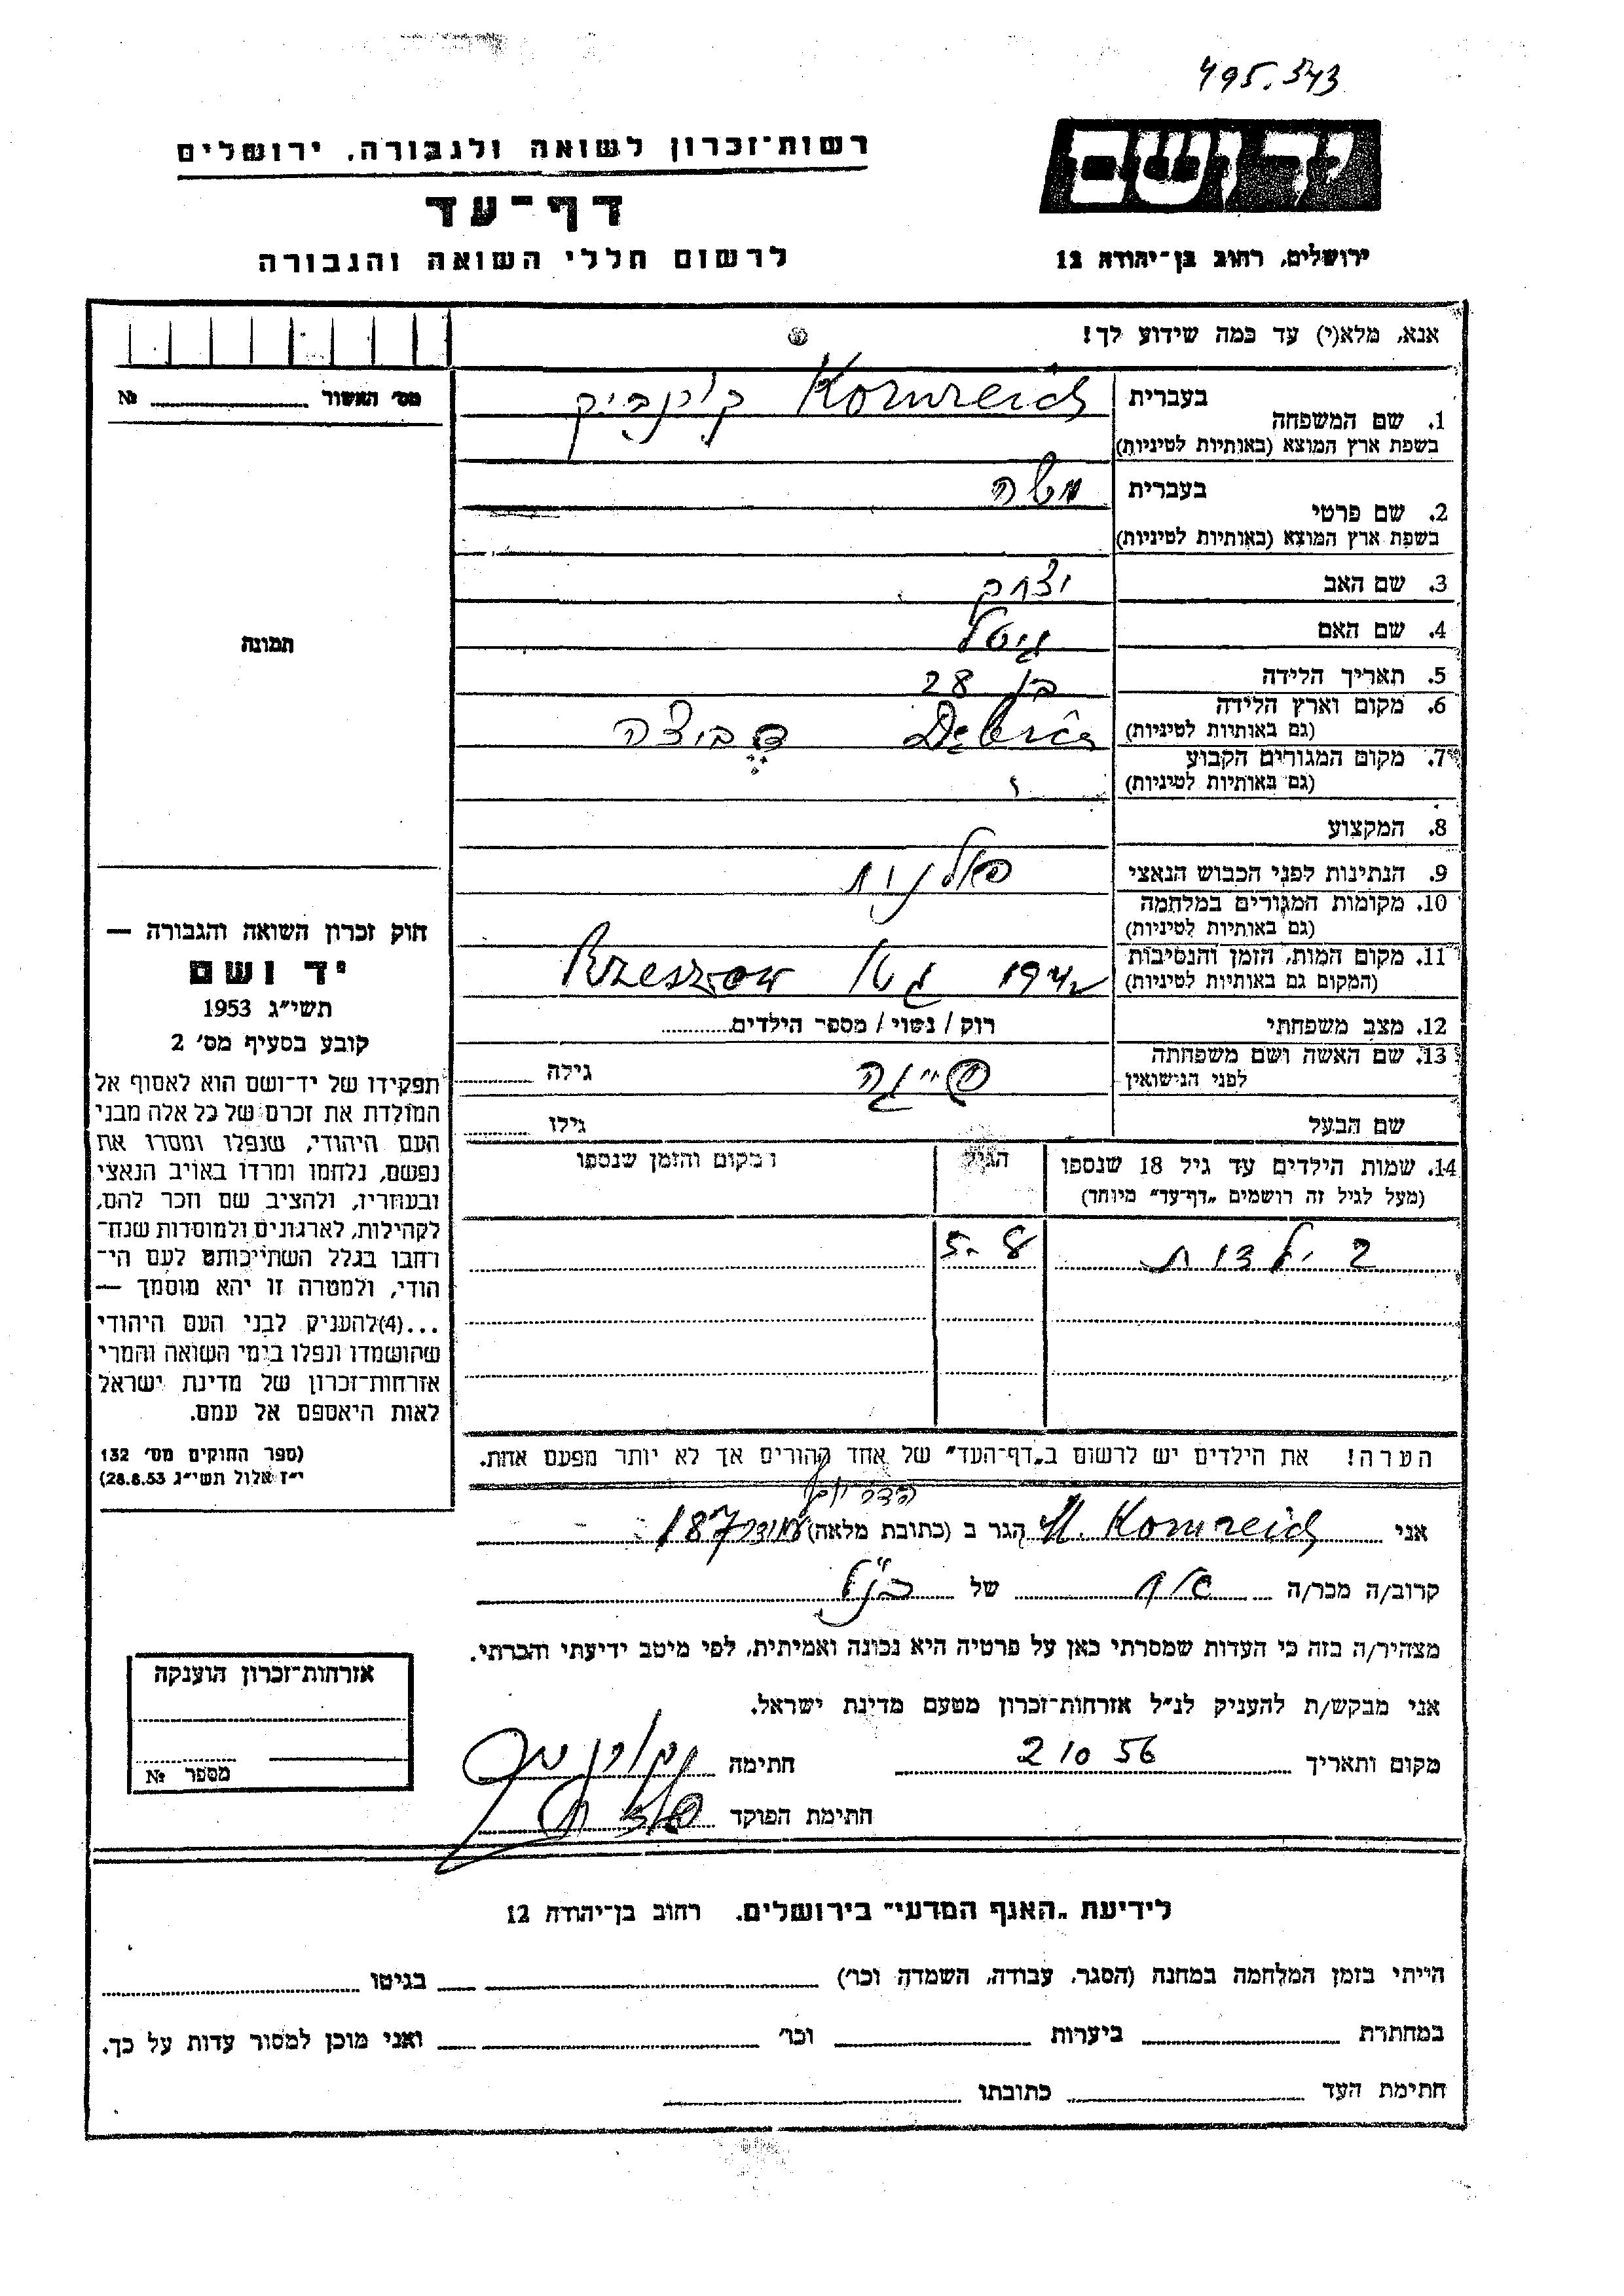 495.343
רשות־זכרון לשואה ולגבורה, ירושלים
יד ושם
דף־עד
לרשום חללי השואה והגבורה
ירושלים, רחוב בן־יהודה 12
אנא, מלא(י) עד כמה שידוע לך!
מס׳ האשור № 
1. שם המשפחה בעברית Kornreich
בשפת ארץ המוצא (באותיות לטיניות)
2. שם פרטי בעברית משה
בשפת ארץ המוצא (באותיות לטיניות)
3. שם האב יצחק
4. שם האם גיטל
5. תאריך הלידה בן 28
6. מקום וארץ הלידה
(גם באותיות לטיניות) Debica דביצה
7. מקום המגורים הקבוע
(גם באותיות לטיניות)
8. המקצוע
9. הנתינות לפני הכבוש הנאצי פולנית
10. מקומות המגורים במלחמה
(גם באותיות לטיניות)
11. מקום המות, הזמן והנסיבות
(המקום גם באותיות לטיניות) 1942 גטו Rzeszow
12. מצב משפחתי רוק / נשוי / מספר הילדים
13. שם האשה ושם משפחתה
לפני הנישואין פייגה גילה
שם הבעל גילו
14. שמות הילדים עד גיל 18 שנספו
(מעל לגיל זה רושמים „דף־עד״ מיוחד)
הגיל
מקום והזמן שנספו
2 ילדות 8 - 5
הערה! את הילדים יש לרשום ב„דף־העד״ של אחד ההורים אך לא יותר מפעם אחת.
תמונה
חוק זכרון השואה והגבורה —
יד ושם
תשי״ג 1953
קובע בסעיף מס׳ 2
תפקידו של יד־ושם הוא לאסוף אל
המולדת את זכרם של כל אלה מבני
העם היהודי, שנפלו ומסרו את
נפשם, נלחמו ומרדו באויב הנאצי
ובעוזריו, ולהציב שם וזכר להם,
לקהילות, לארגונים ולמוסדות שנח־
רחבו בגלל השתייכותם לעם הי־
הודי, ולמטרה זו יהא מוסמך —
...(4)להעניק לבני העם היהודי
שהושמדו ונפלו בימי השואה והמרי
אזרחות־זכרון של מדינת ישראל
לאות היאספם אל עמם.
(ספר החוקים מס׳ 132
י״ז אלול תשי״ג 28.8.53)
אני M. Kornreich הגר ב (כתובת מלאה) 187
קרוב/ה מכר/ה אח של הנ״ל
מצהיר/ה בזה כי העדות שמסרתי כאן על פרטיה היא נכונה ואמיתית, לפי מיטב ידיעתי והכרתי.
אני מבקש/ת להעניק לנ״ל אזרחות־זכרון מטעם מדינת ישראל.
מקום ותאריך 2 10 56 חתימה
חתימת הפוקד
אזרחות־זכרון הוענקה
מספר №
לידיעת „האגף המדעי״ בירושלים, רחוב בן־יהודה 12
הייתי בזמן המלחמה במחנה (הסגר, עבודה, השמדה וכו׳) בגיטו
במחתרת ביערות וכו׳ ואני מוכן למסור עדות על כך.
חתימת העד כתובתו